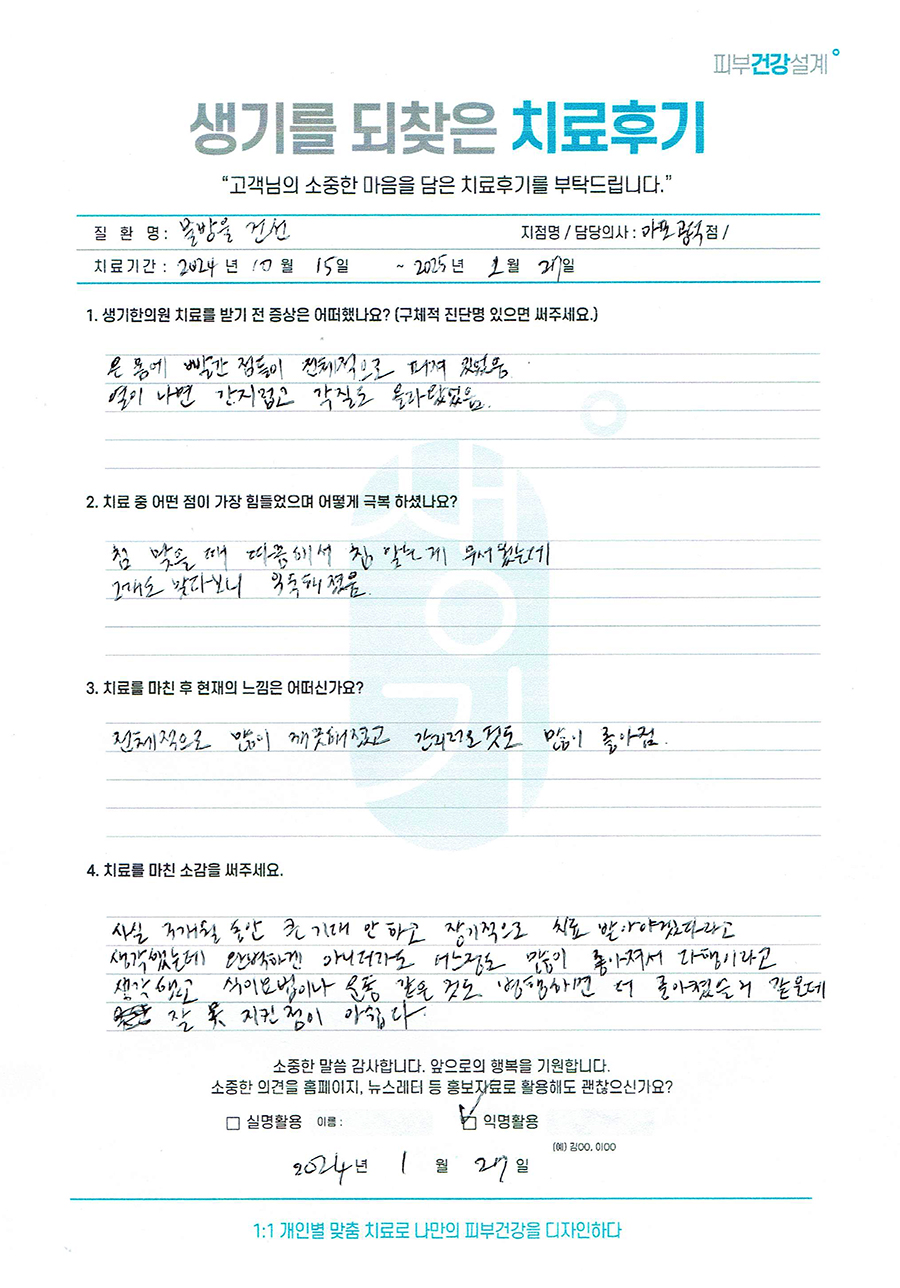 피부건강설계
생기를 되찾은 치료후기
“고객님의 소중한 마음을 담은 치료후기를 부탁드립니다.”
질 환 명 : 물방울 건선 지점명 / 담당의사 : 마포공덕점 /
치료기간 : 2024 년 10 월 15일 ~ 2025년 1월 27일
1. 생기한의원 치료를 받기 전 증상은 어떠했나요? (구체적 진단명 있으면 써주세요.)
온 몸에 빨간 점들이 전체적으로 퍼져 있었음.
열이 나면 간지럽고 각질도 올라왔었음.
2. 치료 중 어떤 점이 가장 힘들었으며 어떻게 극복 하셨나요?
침 맞을 때 따끔해서 침 맞는게 무서웠는데
그래도 맞다보니 익숙해졌음.
3. 치료를 마친 후 현재의 느낌은 어떠신가요?
전체적으로 많이 깨끗해졌고 간지러운것도 많이 좋아짐.
4. 치료를 마친 소감을 써주세요.
사실 3개월 동안 큰 기대 안 하고 장기적으로 치료 받아야겠다라고
생각했는데 완벽하겐 아니더라도 어느정도 많이 좋아져서 다행이라고
생각했고 식이요법이나 운동 같은 것도 병행하면 더 좋아졌을거 같은데
잘 못 지킨점이 아쉽다.
소중한 말씀 감사합니다. 앞으로의 행복을 기원합니다.
소중한 의견을 홈페이지, 뉴스레터 등 홍보자료로 활용해도 괜찮으신가요?
실명활용 이름 : 익명활용
(예) 김OO, 이OO
2024년 1 월 27일
1:1 개인별 맞춤 치료로 나만의 피부건강을 디자인하다
생기